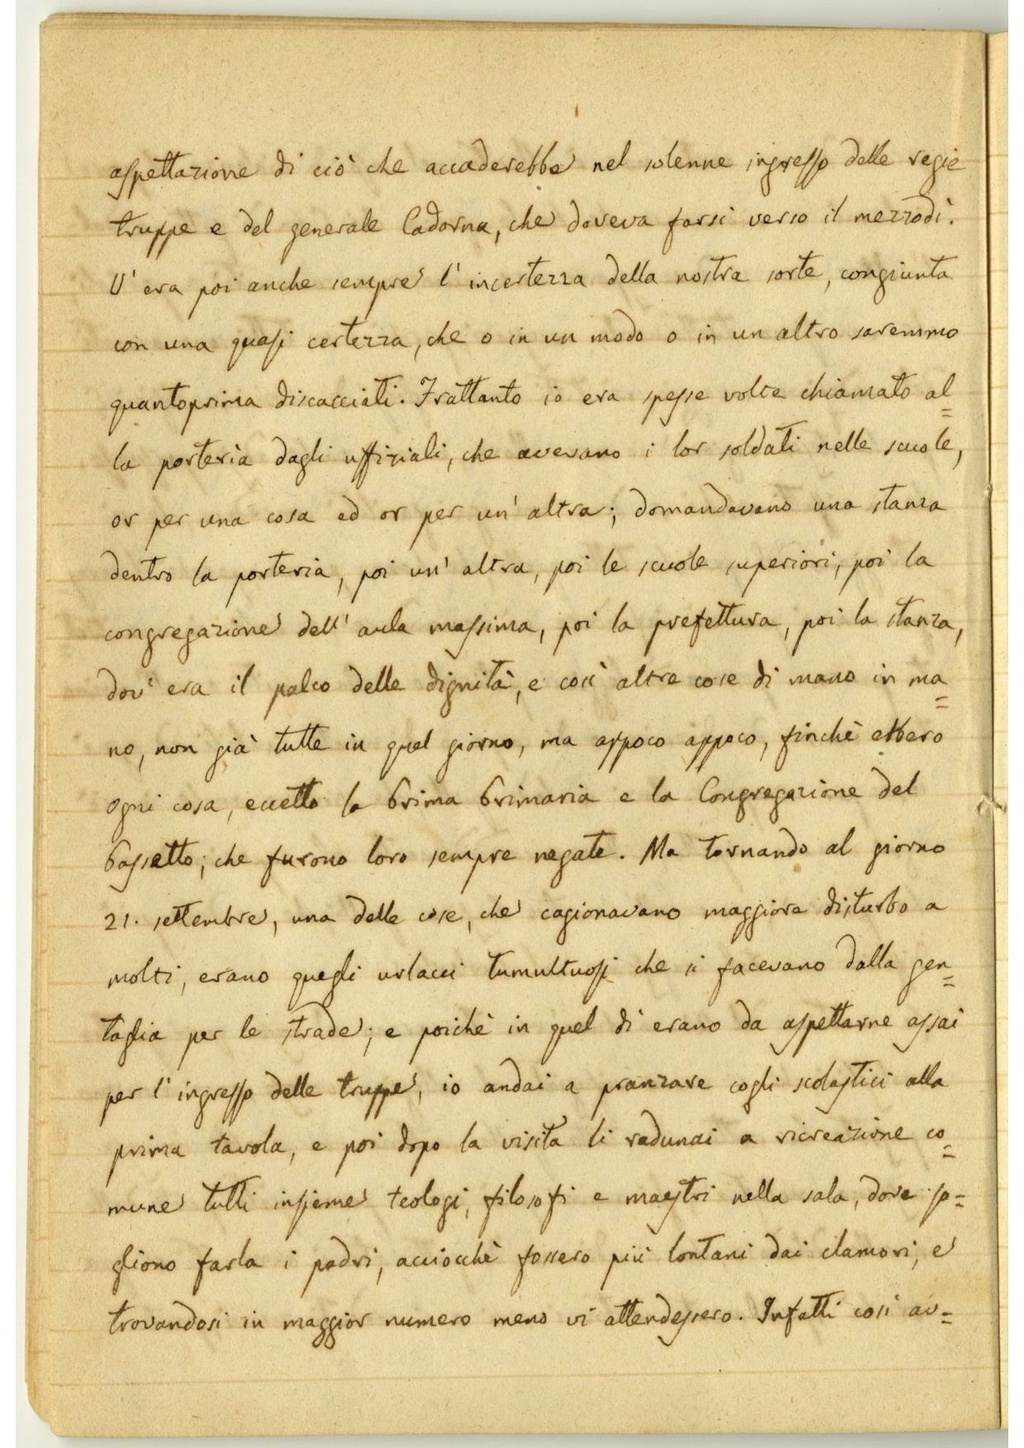 aspettazione di ciò che accaderebbe nel solenne ingresso delle regie
truppe e del generale Cadorna, che doveva farsi verso il mezzodì.
V'era poi anche sempre l'incertezza della nostra sorte, congiunta
con una quasi certezza, che o in un modo o in un altro saremmo
quantoprima discacciati. Frattanto io era spesse volte chiamato al=
la porteria dagli uffiziali, che avevano i lor soldati nelle scuole,
or per una cosa ed or per un'altra; domandavano una stanza
dentro la porteria, poi un'altra, poi le scuole superiori, poi la
congregazione dell'aula massima, poi la prefettura, poi la stanza,
dov'era il palco delle dignità, e così altre cose di mano in ma=
no, non già tutte in quel giorno, ma appoco appoco, finchè ebbero
ogni cosa, eccetto la Prima Primaria e la Congregazione del
Passetto; che furono loro sempre negate. Ma tornando al giorno
21. settembre, una delle cose, che cagionavano maggiore disturbo a
molti, erano quegli urlacci tumultuosi che si facevano dalla gen=
taglia per le strade; e poichè in quel dì erano da aspettarne assai
per l'ingresso delle truppe, io andai a pranzare cogli scolastici alla
prima tavola, e poi dopo la visita li radunai a ricreazione co=
mune tutti insieme teologi, filosofi e maestri nella sala, dove so=
gliono farla i padri, acciocchè fossero più lontani dai clamori, e
trovandosi in maggior numero meno vi attendessero. Infatti così av=